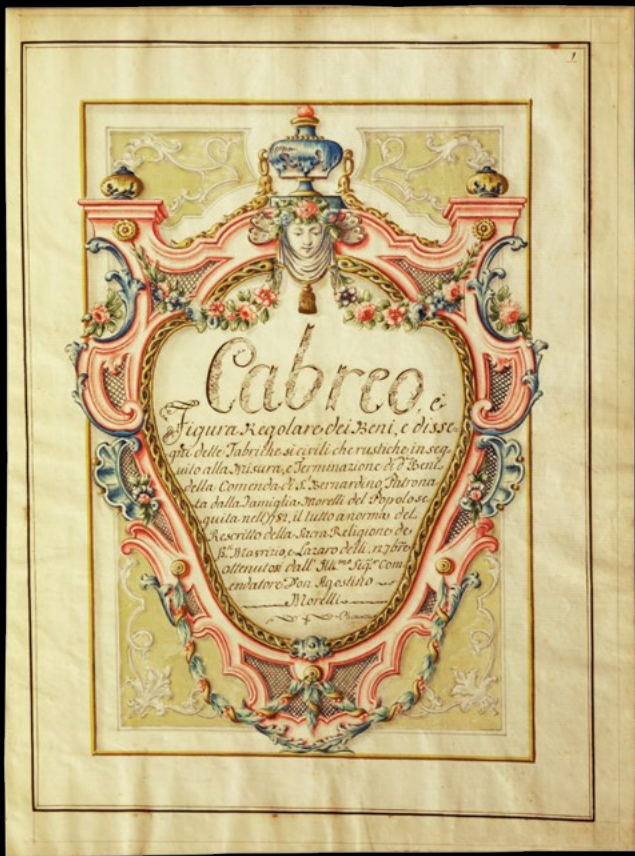 1
Cabreo, e
Figura Regolare dei Beni, e disse-
gni delle Fabriche si civili che rustiche in seg-
uito alla Misura, e Terminazione di d.ⁱ Beni
della Comenda di S. Bernardino Patrona-
ta dalla Famiglia Morelli del Popolo se-
guita nell' 1782, il tutto a norma del
Rescritto della Sacra Religione de
S.ᵗⁱ Maurizio, e Lazaro delli 7bre
ottenutosi dall' Ill.ᵐᵒ Sig.ʳ Com-
endatore Don Agostino
Morelli